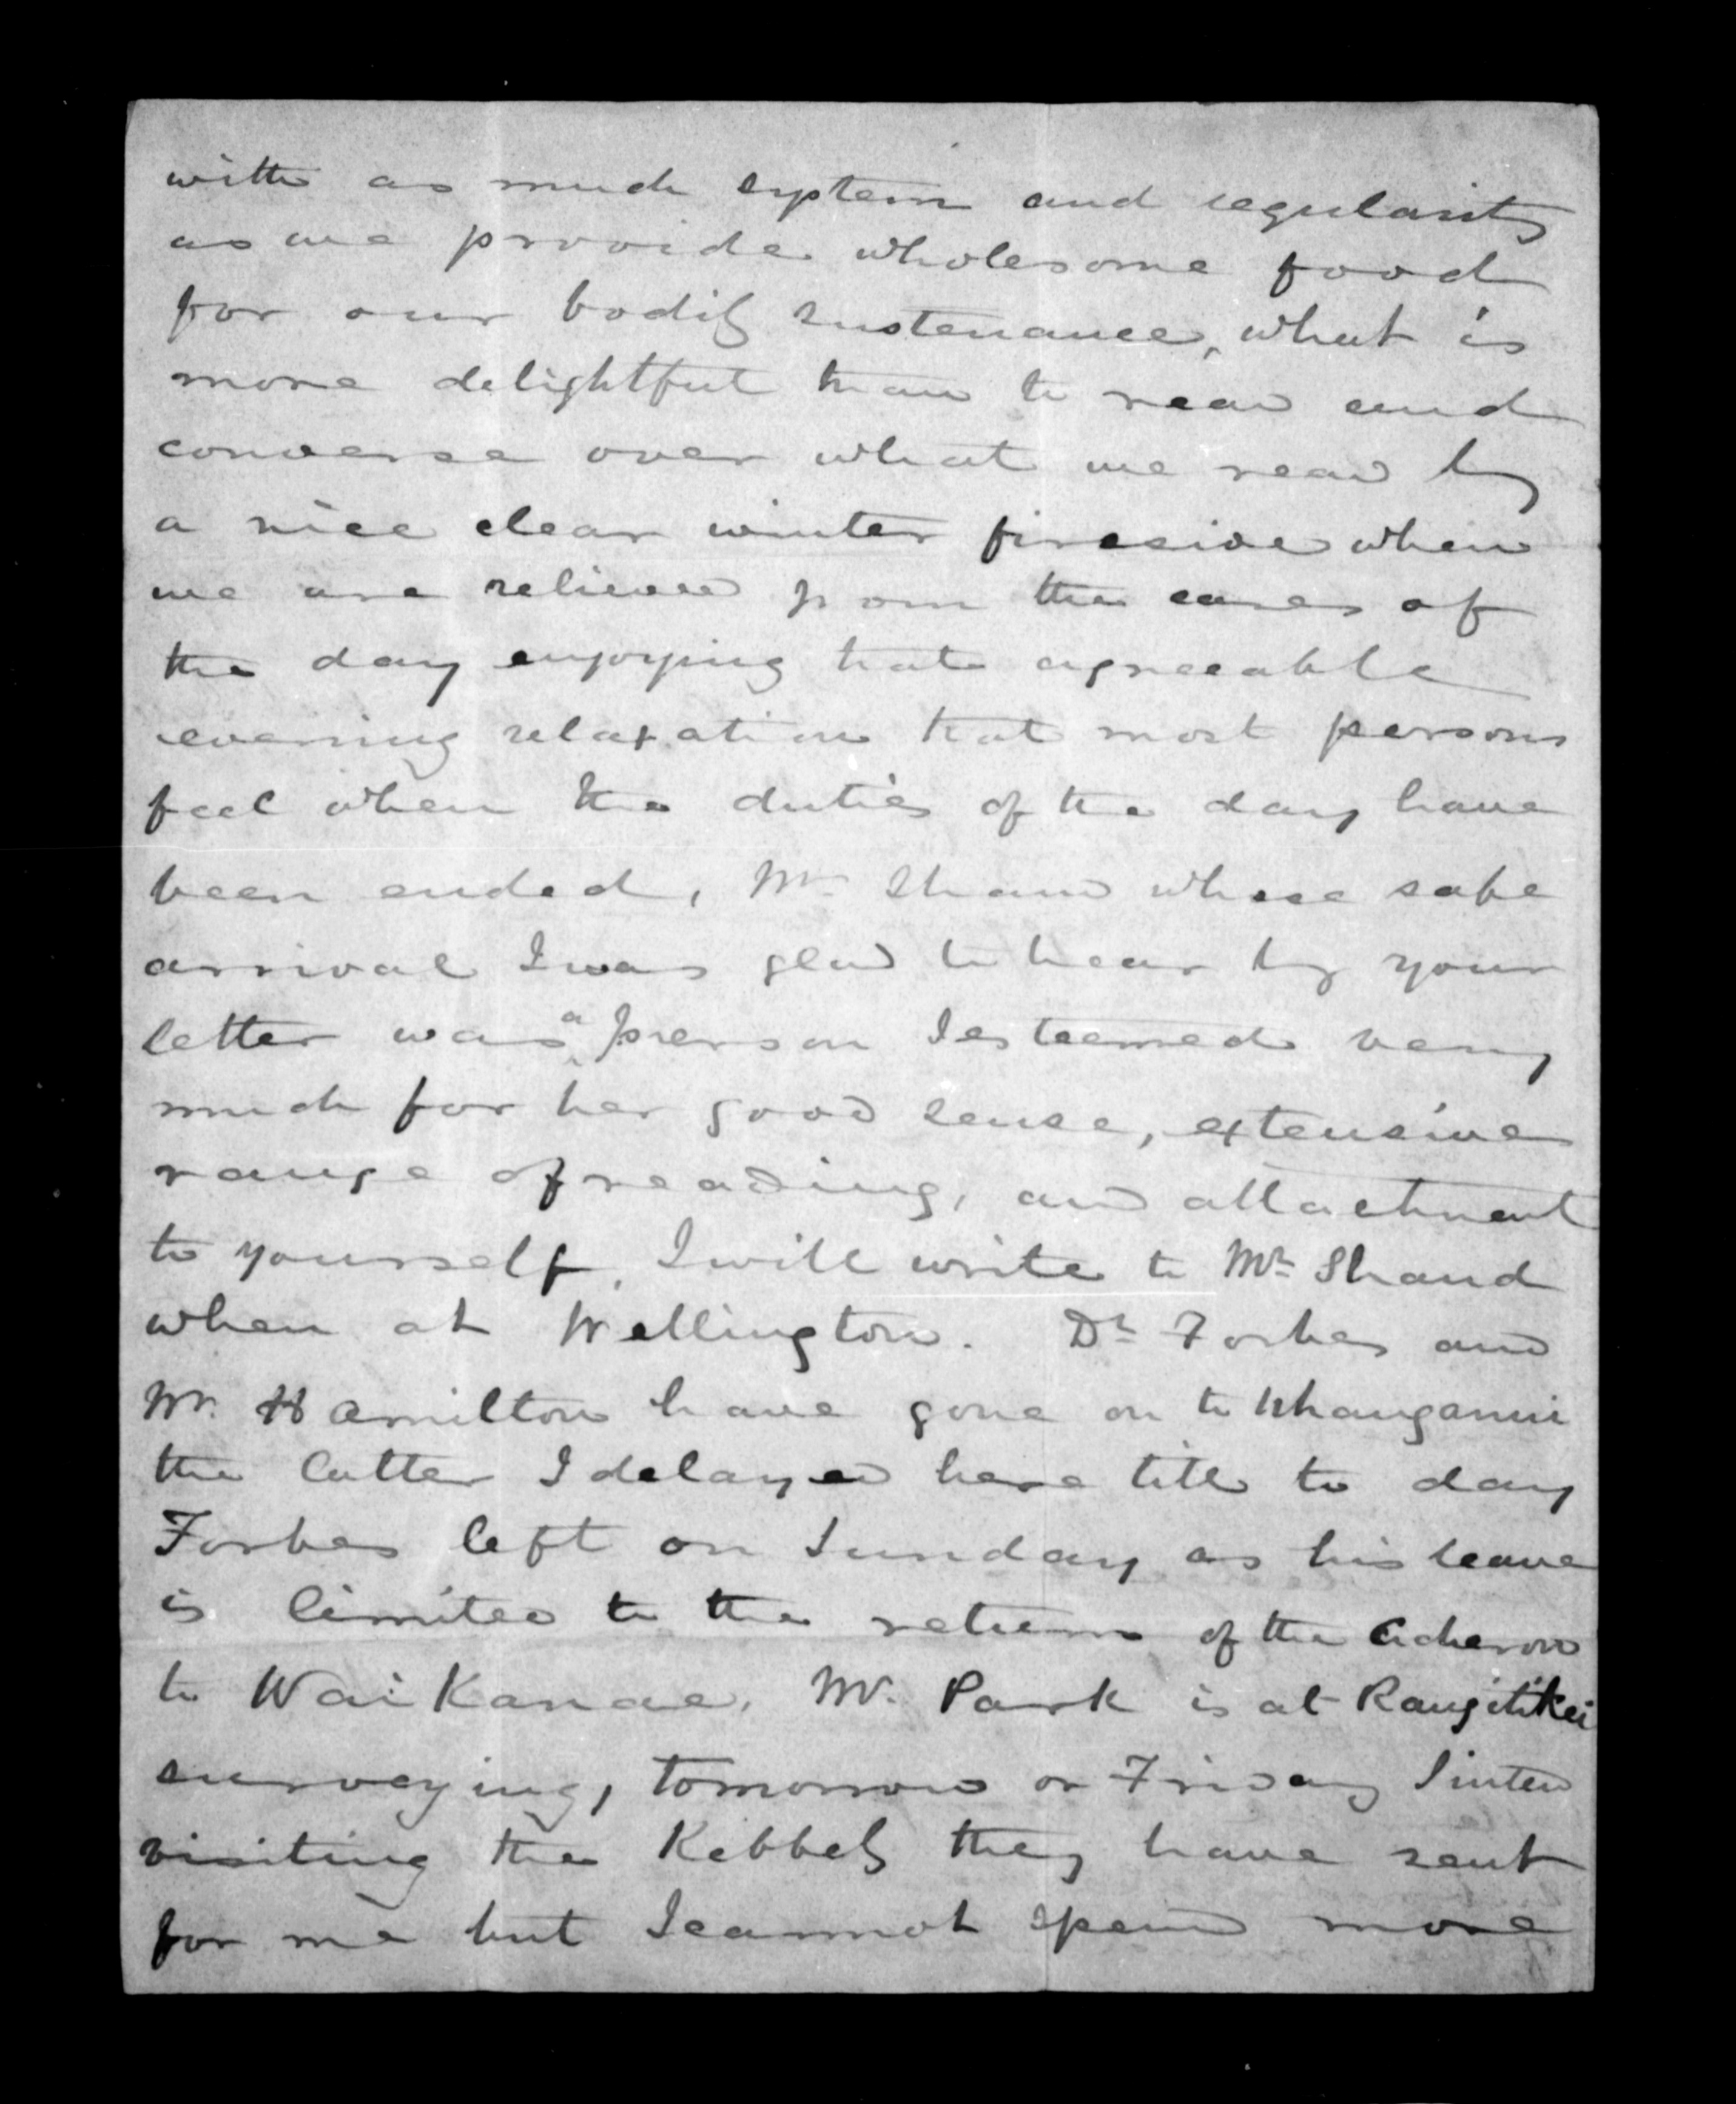 with as much system and regularity
as we provide wholesome food
for our bodily sustenance, what is
more delightful than to read and
converse over what we read by
a nice clear winter fireside when
we are relieved from the cares of
the day enjoying that agreeable
evening relaxation that most persons
feel when the duties of the day have
been ended, Mrs Shand whose safe
arrival I was glad to hear by your
letter was a person I esteemed very
much for her good sense, extensive
range of reading, and attachment
to yourself. I will write to Mr Shand
when at Wellington. Dr Forbes and
Mr. Hamilton have gone on to Whanganui
the latter I delayed here till to day
Forbes left on Sunday as his leave
is limited to the return of the Acheron
to WaiKanae. Mr. Park is at Rangitikei
surveying, tomorrow or Friday I inten
visiting the Kebbels they have sent
for me but I cannot spend more